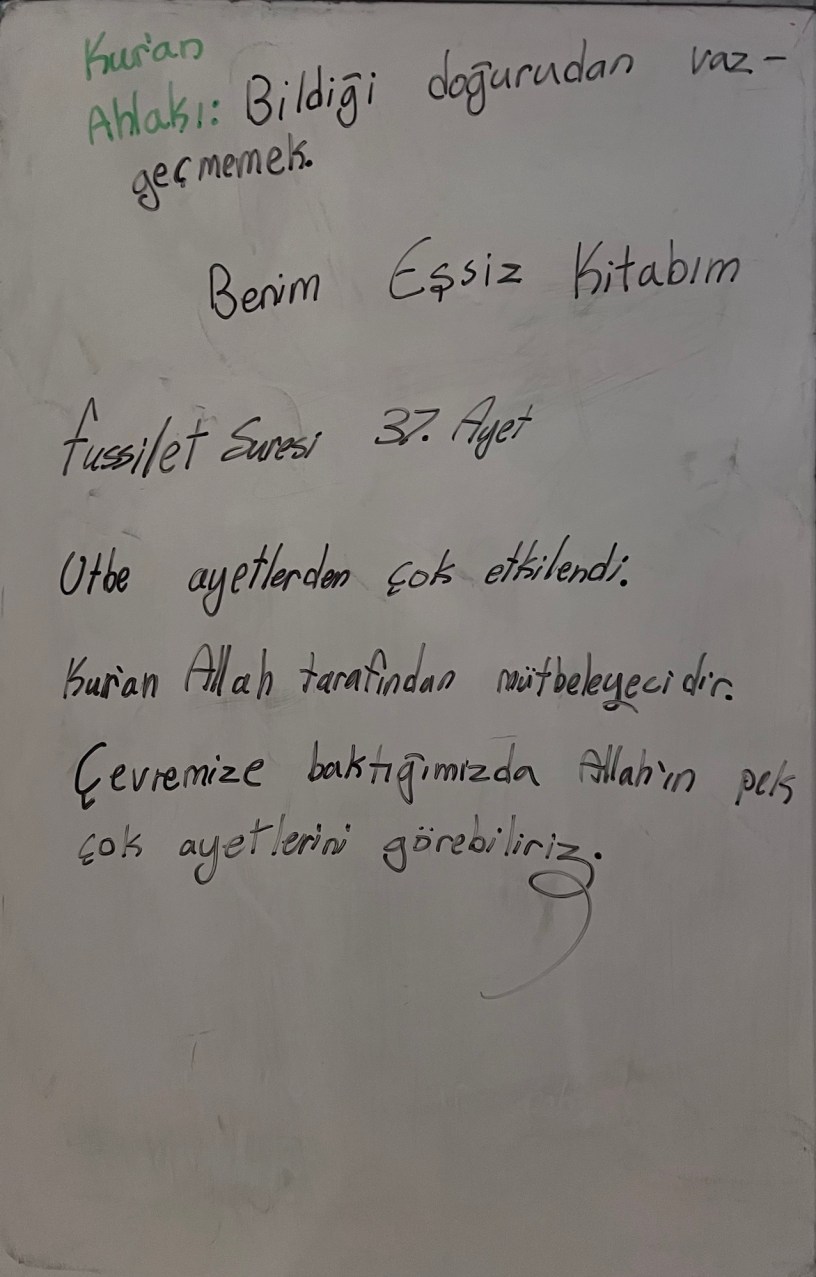 Kur'an
Ahlakı: Bildiği doğurudan vaz-
geçmemek.
Benim Eşsiz Kitabım
fussilet Suresi 37. Ayet
Utbe ayetlerden çok etkilendi.
Kur'an Allah tarafından mütbeleyecidir.
Çevremize baktığımızda Allah'ın pek
çok ayetlerini görebiliriz.